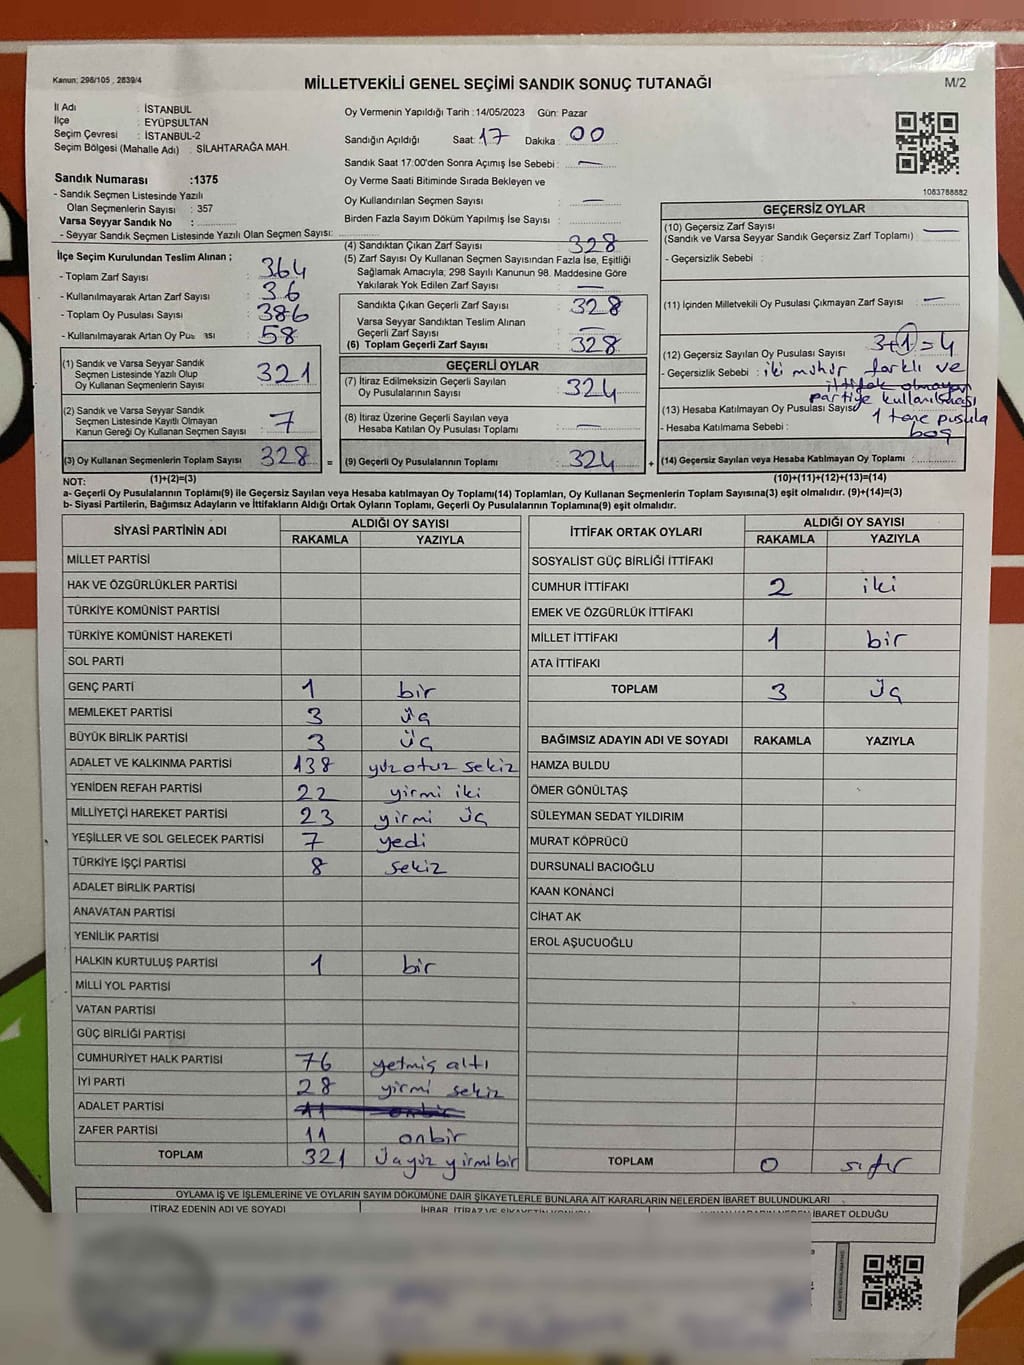 Kanun: 298/105 , 2839/4
MİLLETVEKİLİ GENEL SEÇİMİ SANDIK SONUÇ TUTANAĞI
M/2
İl Adı : İSTANBUL
İlçe : EYÜPSULTAN
Seçim Çevresi : İSTANBUL-2
Seçim Bölgesi (Mahalle Adı) : SİLAHTARAĞA MAH.
Sandık Numarası :1375
- Sandık Seçmen Listesinde Yazılı
Olan Seçmenlerin Sayısı : 357
Varsa Seyyar Sandık No :
- Seyyar Sandık Seçmen Listesinde Yazılı Olan Seçmen Sayısı:
Oy Vermenin Yapıldığı Tarih :14/05/2023 Gün: Pazar
Sandığın Açıldığı Saat: 17 Dakika : 00
Sandık Saat 17:00'den Sonra Açımış İse Sebebi : —
Oy Verme Saati Bitiminde Sırada Bekleyen ve
Oy Kullandırılan Seçmen Sayısı : —
Birden Fazla Sayım Döküm Yapılmış İse Sayısı :
1083788882
İlçe Seçim Kurulundan Teslim Alınan ;
- Toplam Zarf Sayısı : 364
- Kullanılmayarak Artan Zarf Sayısı : 36
- Toplam Oy Pusulası Sayısı : 386
- Kullanılmayarak Artan Oy Pu ısı : 58
(1) Sandık ve Varsa Seyyar Sandık
Seçmen Listesinde Yazılı Olup
Oy Kullanan Seçmenlerin Sayısı : 321
(2) Sandık ve Varsa Seyyar Sandık
Seçmen Listesinde Kayıtlı Olmayan
Kanun Gereği Oy Kullanan Seçmen Sayısı : 7
(3) Oy Kullanan Seçmenlerin Toplam Sayısı : 328
(1)+(2)=(3)
(4) Sandıktan Çıkan Zarf Sayısı : 328
(5) Zarf Sayısı Oy Kullanan Seçmen Sayısından Fazla İse, Eşitliği
Sağlamak Amacıyla; 298 Sayılı Kanunun 98. Maddesine Göre
Yakılarak Yok Edilen Zarf Sayısı : —
Sandıkta Çıkan Geçerli Zarf Sayısı : 328
Varsa Seyyar Sandıktan Teslim Alınan
Geçerli Zarf Sayısı : —
(6) Toplam Geçerli Zarf Sayısı : 328
GEÇERLİ OYLAR
(7) İtiraz Edilmeksizin Geçerli Sayılan
Oy Pusulalarının Sayısı : 324
(8) İtiraz Üzerine Geçerli Sayılan veya
Hesaba Katılan Oy Pusulası Toplamı : —
= (9) Geçerli Oy Pusulalarının Toplamı : 324
GEÇERSİZ OYLAR
(10) Geçersiz Zarf Sayısı : —
(Sandık ve Varsa Seyyar Sandık Geçersiz Zarf Toplamı)
- Geçersizlik Sebebi :
(11) İçinden Milletvekili Oy Pusulası Çıkmayan Zarf Sayısı : —
(12) Geçersiz Sayılan Oy Pusulası Sayısı : 3+1=4
- Geçersizlik Sebebi : iki mühür farklı ve
ittifak olmayan
partiye kullanılması
(13) Hesaba Katılmayan Oy Pusulası Sayısı
1 tane pusula
- Hesaba Katılmama Sebebi :
boş
+ (14) Geçersiz Sayılan veya Hesaba Katılmayan Oy Toplamı :
(10)+(11)+(12)+(13)=(14)
NOT:
a- Geçerli Oy Pusulalarının Toplamı(9) ile Geçersiz Sayılan veya Hesaba katılmayan Oy Toplamı(14) Toplamları, Oy Kullanan Seçmenlerin Toplam Sayısına(3) eşit olmalıdır. (9)+(14)=(3)
b- Siyasi Partilerin, Bağımsız Adayların ve İttifakların Aldığı Ortak Oyların Toplamı, Geçerli Oy Pusulalarının Toplamına(9) eşit olmalıdır.
SİYASİ PARTİNİN ADI ALDIĞI OY SAYISI
RAKAMLA YAZIYLA
MİLLET PARTİSİ
HAK VE ÖZGÜRLÜKLER PARTİSİ
TÜRKİYE KOMÜNİST PARTİSİ
TÜRKİYE KOMÜNİST HAREKETİ
SOL PARTİ
GENÇ PARTİ 1 bir
MEMLEKET PARTİSİ 3 üç
BÜYÜK BİRLİK PARTİSİ 3 üç
ADALET VE KALKINMA PARTİSİ 138 yüzotuz sekiz
YENİDEN REFAH PARTİSİ 22 yirmi iki
MİLLİYETÇİ HAREKET PARTİSİ 23 yirmi üç
YEŞİLLER VE SOL GELECEK PARTİSİ 7 yedi
TÜRKİYE İŞÇİ PARTİSİ 8 sekiz
ADALET BİRLİK PARTİSİ
ANAVATAN PARTİSİ
YENİLİK PARTİSİ
HALKIN KURTULUŞ PARTİSİ 1 bir
MİLLİ YOL PARTİSİ
VATAN PARTİSİ
GÜÇ BİRLİĞİ PARTİSİ
CUMHURİYET HALK PARTİSİ 76 yetmiş altı
İYİ PARTİ 28 yirmi sekiz
ADALET PARTİSİ 11 onbir
ZAFER PARTİSİ 11 onbir
TOPLAM 321 üçyüz yirmi bir
İTTİFAK ORTAK OYLARI ALDIĞI OY SAYISI
RAKAMLA YAZIYLA
SOSYALİST GÜÇ BİRLİĞİ İTTİFAKI
CUMHUR İTTİFAKI 2 iki
EMEK VE ÖZGÜRLÜK İTTİFAKI
MİLLET İTTİFAKI 1 bir
ATA İTTİFAKI
TOPLAM 3 üç
BAĞIMSIZ ADAYIN ADI VE SOYADI RAKAMLA YAZIYLA
HAMZA BULDU
ÖMER GÖNÜLTAŞ
SÜLEYMAN SEDAT YILDIRIM
MURAT KÖPRÜCÜ
DURSUNALİ BACIOĞLU
KAAN KONANCİ
CİHAT AK
EROL AŞUCUOĞLU
TOPLAM 0 sıfır
OYLAMA İŞ VE İŞLEMLERİNE VE OYLARIN SAYIM DÖKÜMÜNE DAİR ŞİKAYETLERLE BUNLARA AİT KARARLARIN NELERDEN İBARET BULUNDUKLARI
İTİRAZ EDENİN ADI VE SOYADI İHBAR, İTİRAZ VE ŞİKAYETİN KONUSU İBARET OLDUĞU